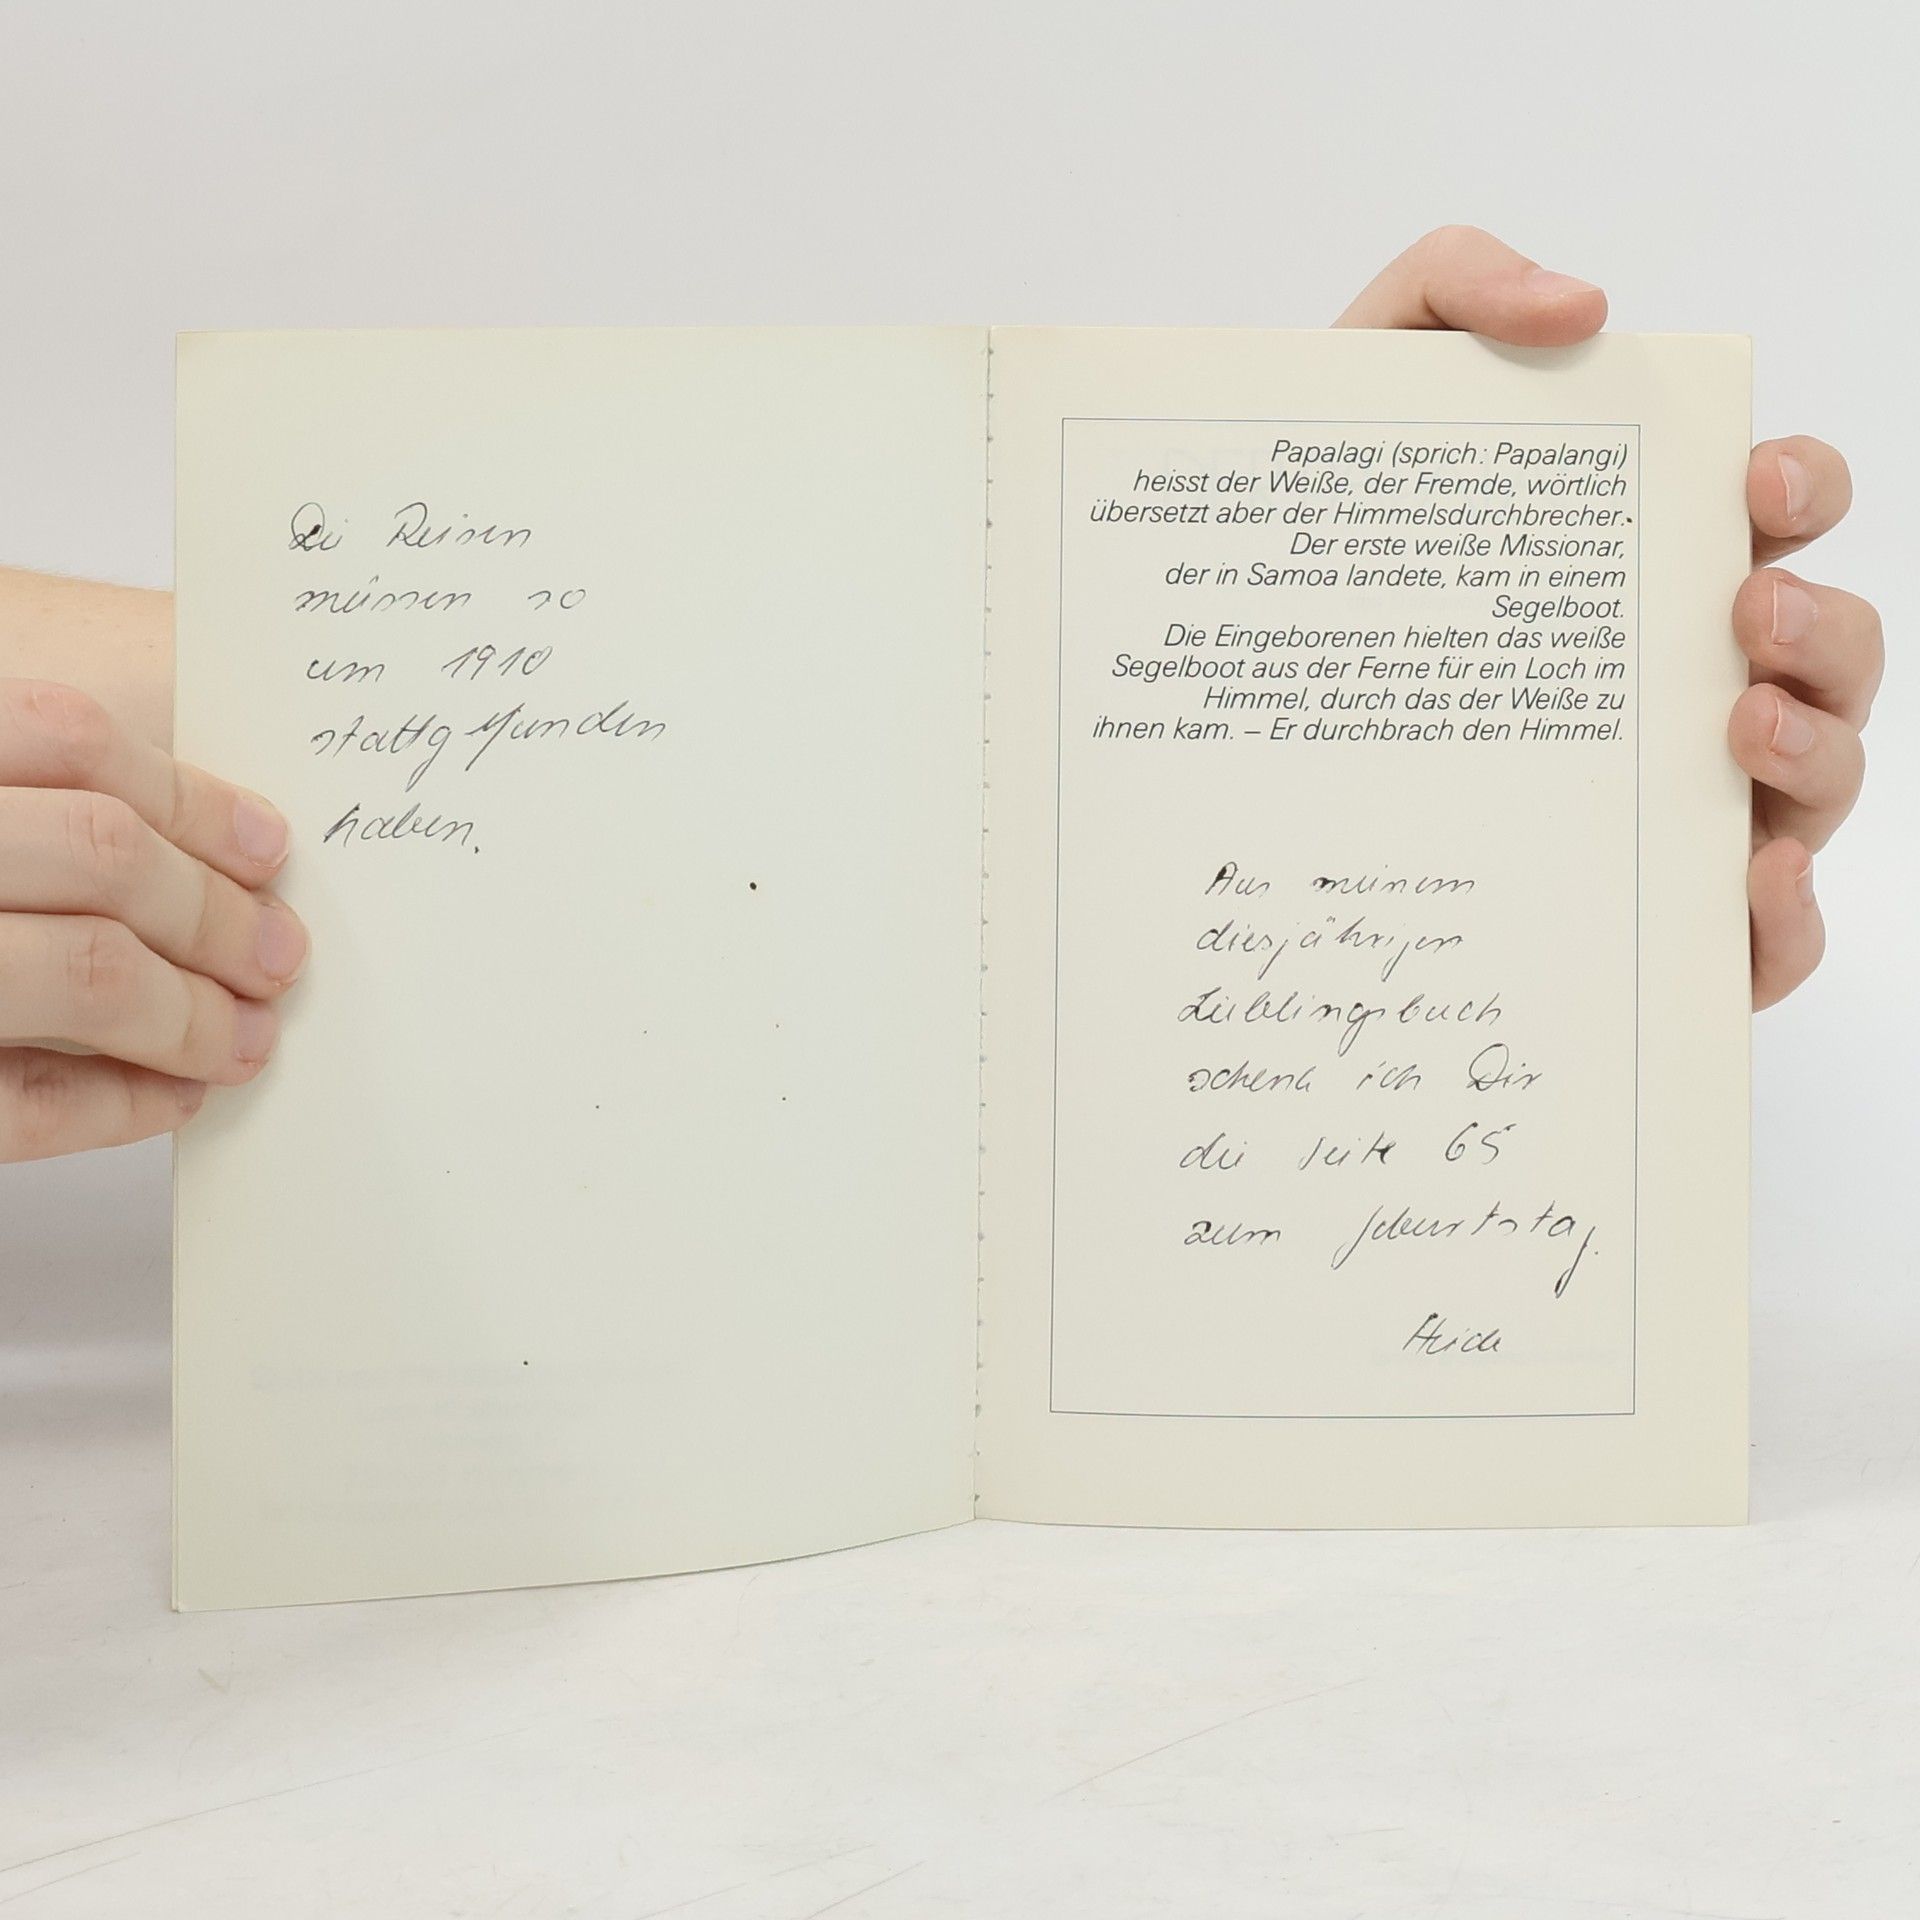 Die Reisen
müssen so
um 1910
stattgefunden
haben.
Papalagi (sprich: Papalangi)
heisst der Weiße, der Fremde, wörtlich
übersetzt aber der Himmelsdurchbrecher.
Der erste weiße Missionar,
der in Samoa landete, kam in einem
Segelboot.
Die Eingeborenen hielten das weiße
Segelboot aus der Ferne für ein Loch im
Himmel, durch das der Weiße zu
ihnen kam. – Er durchbrach den Himmel.
Aus meinem
diesjährigen
Lieblingsbuch
schenk ich Dir
die Seite 65
zum Geburtstag.
Heide